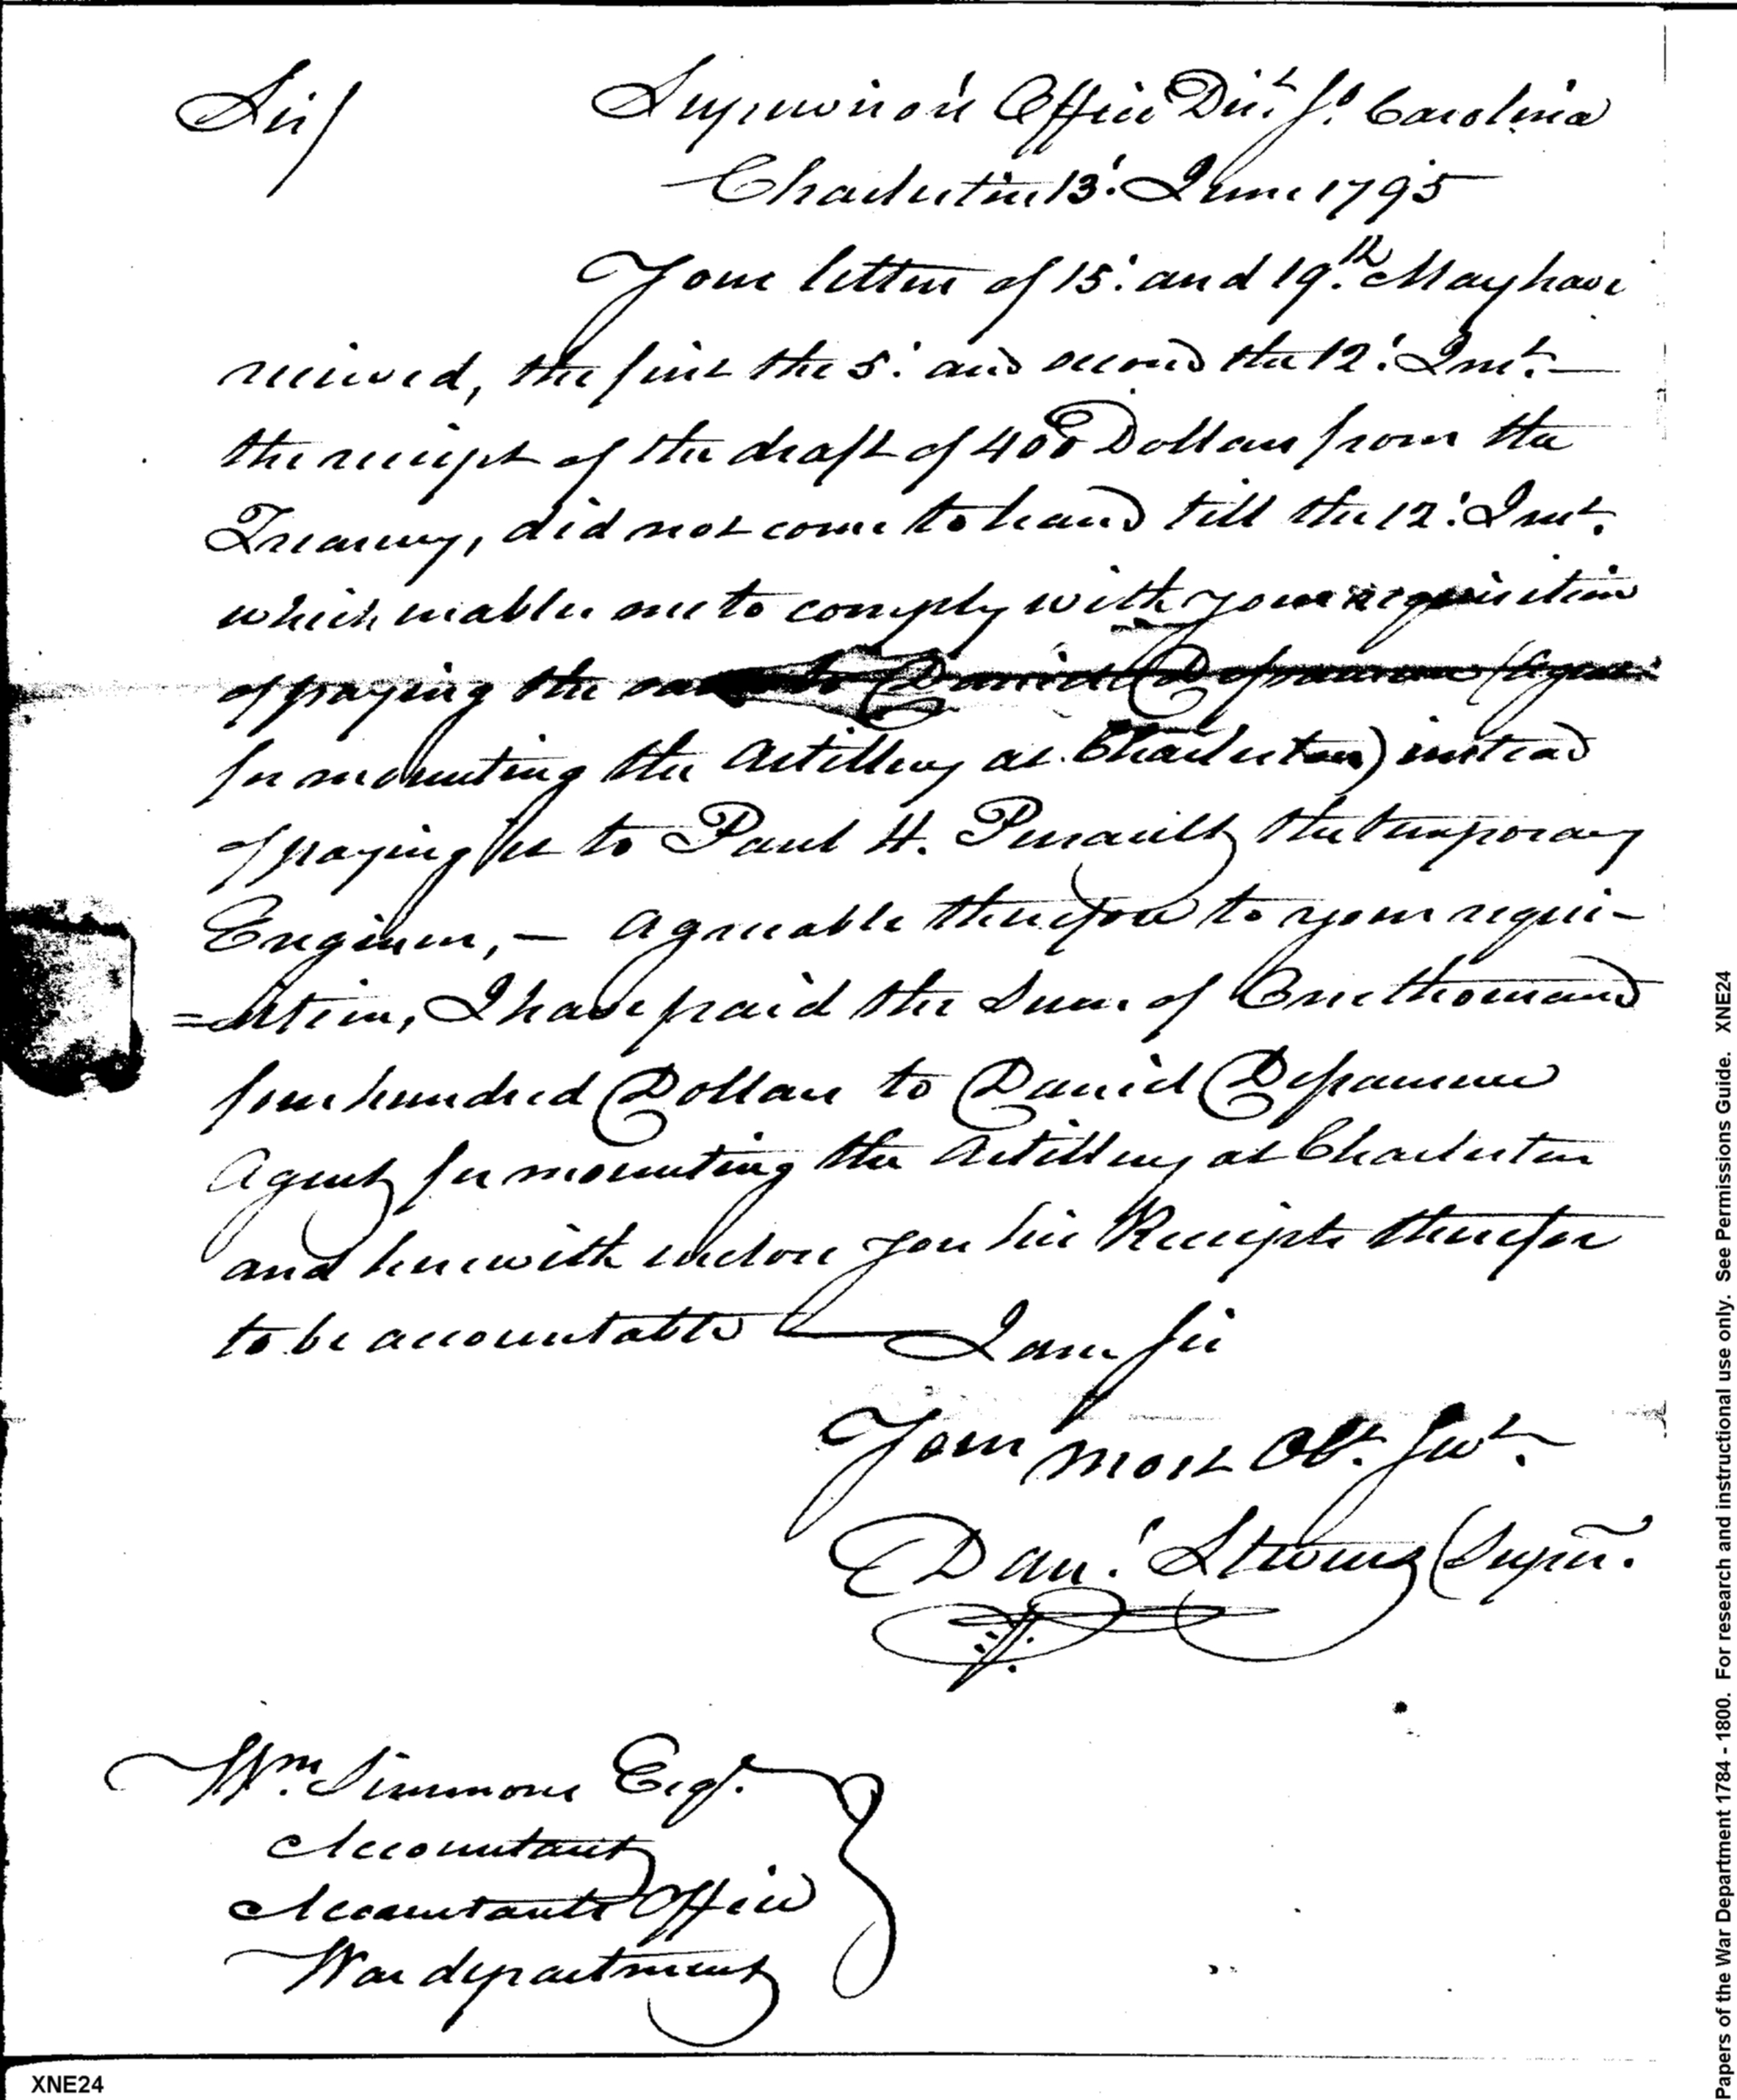 Sir/ Supervisor's Office Dist. So. Carolina
Charleston 13' June 1795
Your letters of 15' and 19th May have
received, the first the 5' and second the 12' Inst.
the receipt of the draft of 400 Dollars from the
Treasury, did not come to hand till the 12' Inst.
which enables me to comply with your requisition
of paying the to Daniel Desaussure (Agent
for mounting the Artillery at Charleston) instead
of paying it to Paul H. Perrault the temporary
Engineer, — Agreeable therefore to your requi-
=sition, I have paid the Sum of One thousand
four hundred Dollars to Daniel Desaussure
Agent for mounting the Artillery at Charleston
and herewith inclose you his Receipts therefor
to be accountable — I am Sir
Your most Obt. Servt.
Danl. Stevens Superr.
Wm. Simmons Esqr.
Accountant
Accountants Office
War department
XNE24
Papers of the War Department 1784 - 1800. For research and instructional use only. See Permissions Guide. XNE24